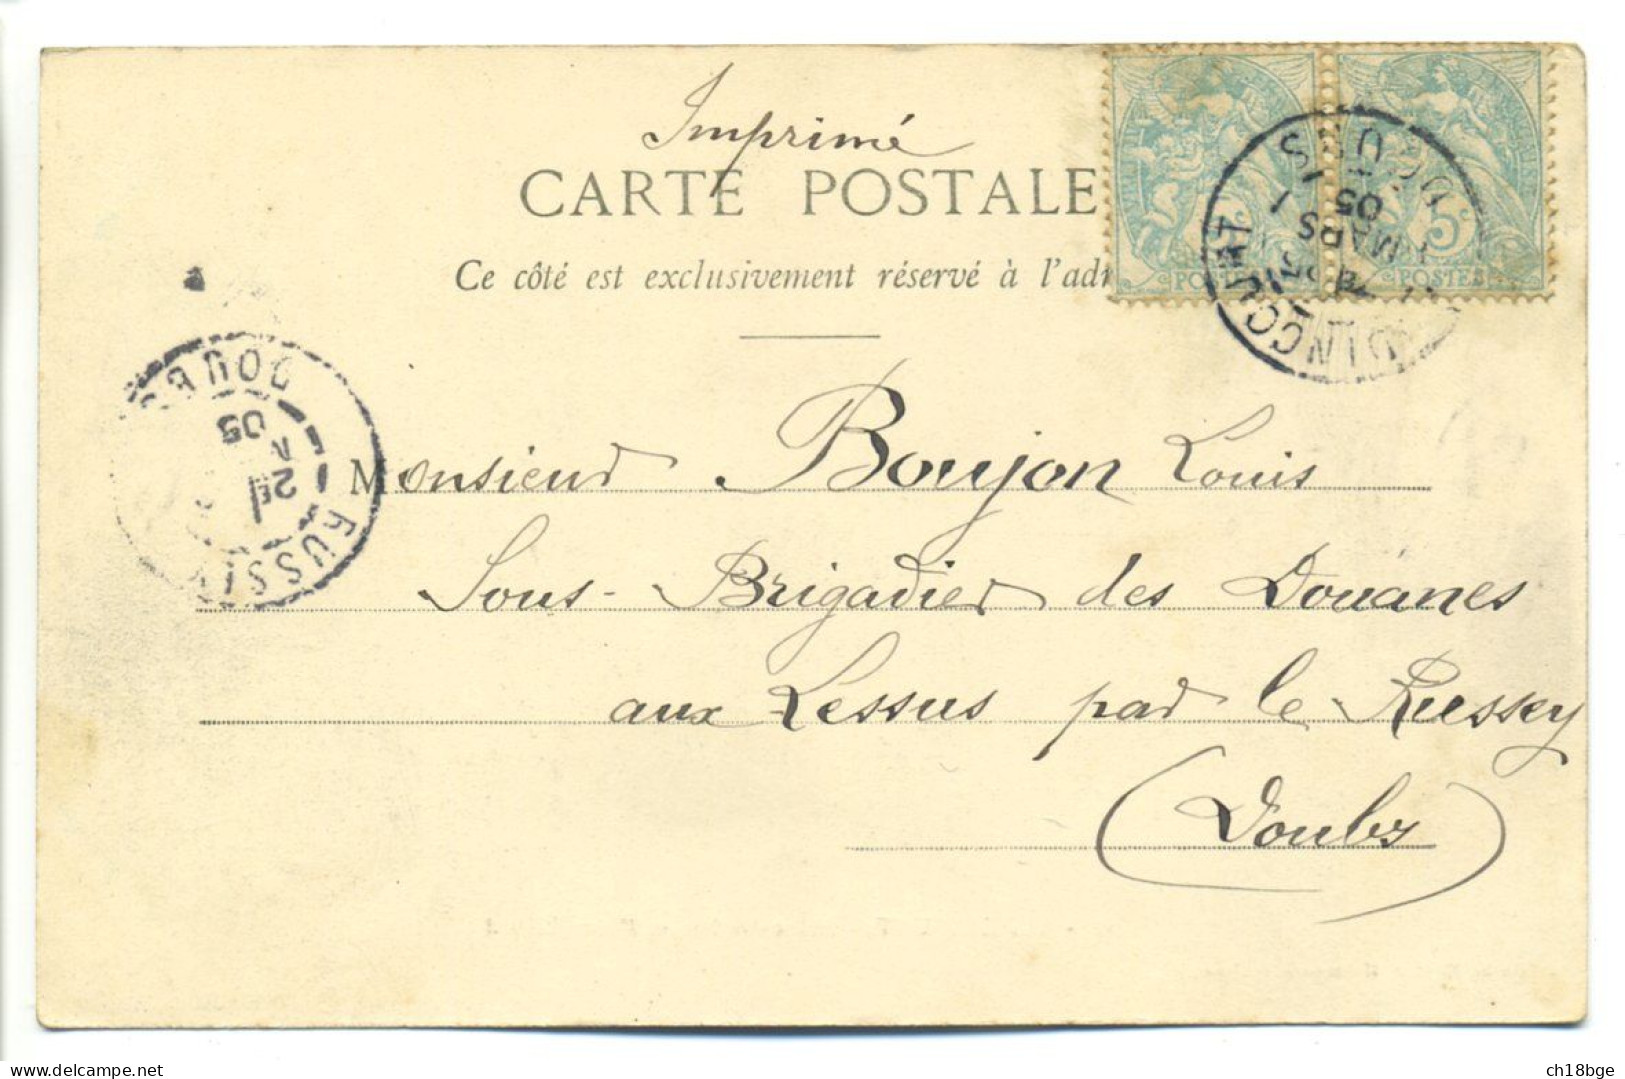 Imprimé
CARTE POSTALE
Ce côté est exclusivement réservé à l'adr
POSTES
5c
POSTES
MARS
05
DOUBS
05
2E
RUSSEY
Monsieur Boujon Louis
Sous-Brigadier des Douanes
aux Lessus par le Russey
(Doubs)
delcampe.net
ch18bge